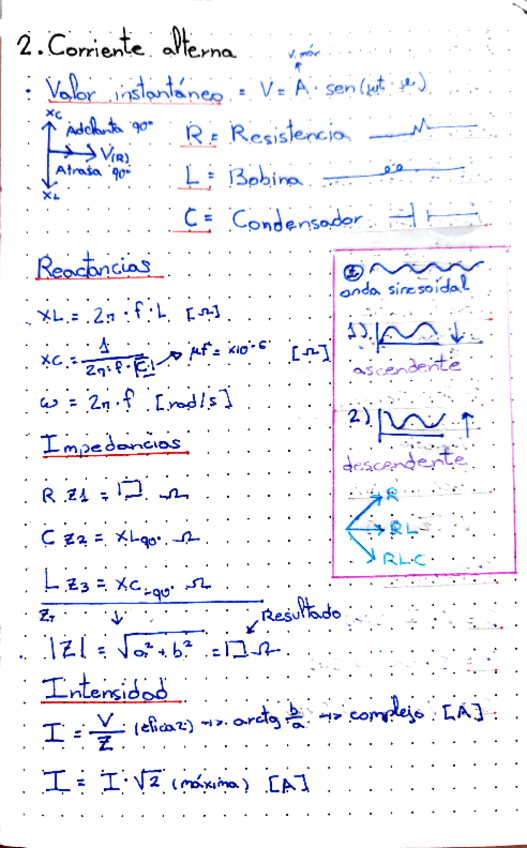 2. Corriente alterna
v. máx
Valor instantáneo = V = A · sen(wt · φ)
XC
Adelanta 90°
V(R)
Atrasa 90°
XL
R = Resistencia
L = Bobina
C = Condensador
Reactancias
XL = 2π · f · L [Ω]
XC = 1 / 2π · f · C → μf = x10^-6 [Ω]
ω = 2π · f [rad/s]
Impedancias
R Z1 = □ Ω
C Z2 = XL90° Ω
L Z3 = XC-90° Ω
ZT ↓
Resultado
|Z| = √a² + b² = □ Ω
Intensidad
I = V/Z (eficaz) → arctg b/a → complejo [A]
I = I · √2 (máxima) [A]
onda sinesoidal
1) ↓
ascendente
2) ↑
descendente
R
RL
RLC